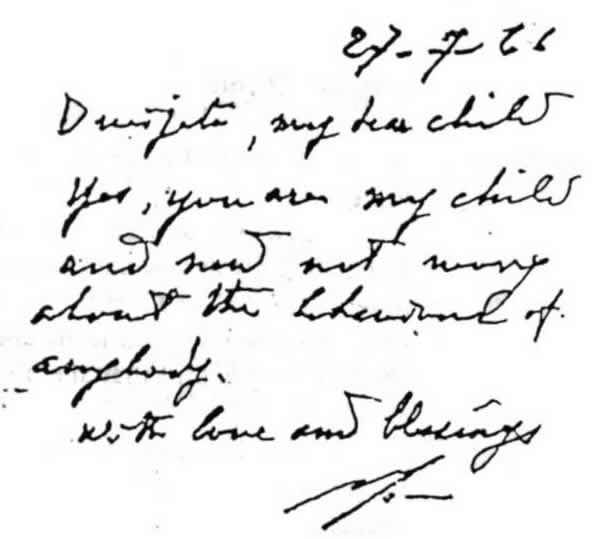 27-7-66
Dwijita, my dear child
Yes, you are my child
and need not worry
about the behaviour of
anybody.
with love and blessings